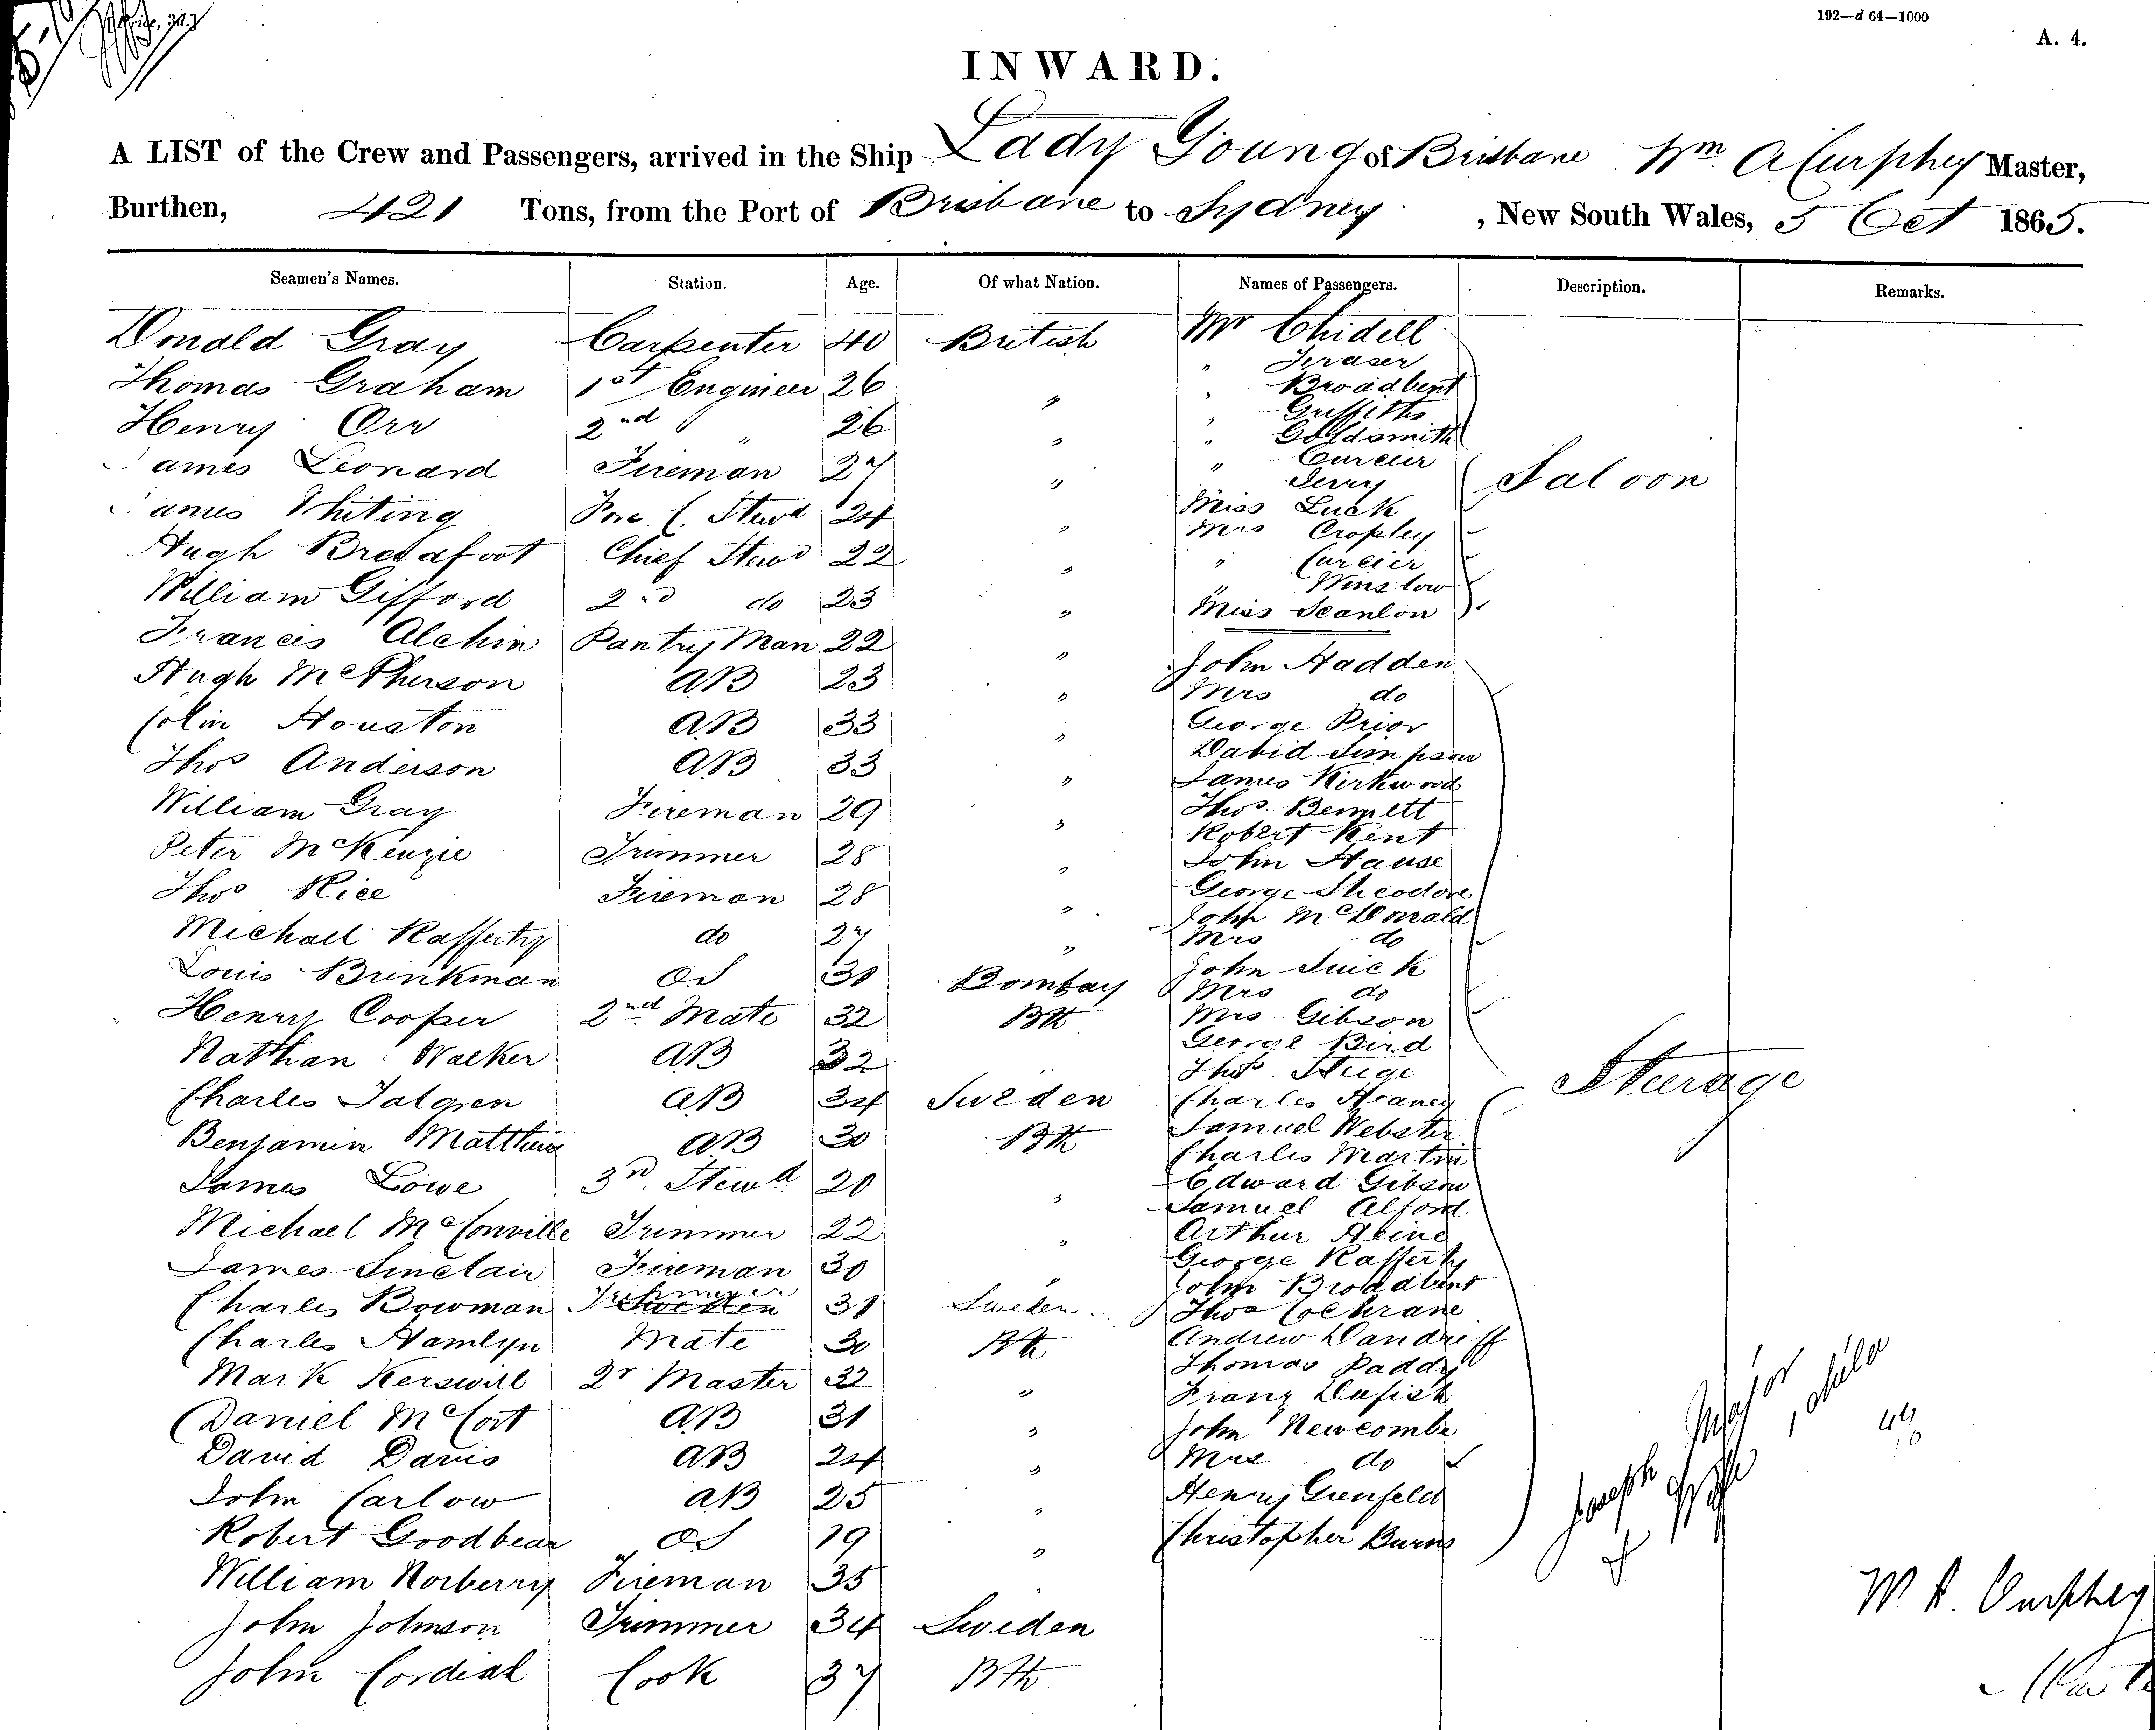 192—d 64—1000
A. 4.
INWARD.
A LIST of the Crew and Passengers, arrived in the Ship Lady Young of Brisbane Wm A Curphey Master,
Burthen, 421 Tons, from the Port of Brisbane to Sydney , New South Wales, 5 Oct 1865.
Seamen's Names. Station. Age. Of what Nation. Names of Passengers. Description. Remarks.
Donald Gray Carpenter 40 British Mr Chidell
" Fraser
Thomas Graham 1st Engineer 26 " " Broadbent
" Griffiths
Henry Orr 2nd " 26 " " Goldsmith
James Leonard Fireman 27 " " Curcier
Saloon
" Terry
James Whiting Fore C. Stewd 24 " Miss Luck
Mrs Cropley
Hugh Bredafoot Chief Stewd 22 " " Curcier
William Gifford 2nd do 23 " " Winslow
Miss Scanlon
Francis Alchin Pantry Man 22 " John Hadden
Hugh McPherson AB 23 " Mrs do
Colin Houston AB 33 " George Prior
David Simpson
Thos Anderson AB 33 " James Kirkwood
William Gray Fireman 29 " Thos. Bennett
Robert Kent
Peter McKenzie Trimmer 28 " John Hause
Thos Rice Fireman 28 " George Theodore
John McDonald
Michael Rafferty do 27 " Mrs do
Louis Brinkman OS 31 Bombay John Quick
Mrs do
Henry Cooper 2nd Mate 32 Bth Mrs Gibson
George Bird
Nathan Walker AB 32 Thos
Steerage
Charles Talgren AB 34 Sweden Charles Heaney
Samuel Webster
Benjamin Matthews AB 30 Bth Charles Martin
James Lowe 3rd Stewd 20 " Edward Gibson
Samuel Alford
Michael McConville Trimmer 22 " Arthur Heine
James Sinclair Fireman 30 " George Rafferty
John Broadbent
Charles Bowman Trimmer 31 Sweden Thos Cochrane
Charles Hamlyn Mate 30 Bth Andrew Vandreff
Thomas Paddy
Mark Kerswill Qr Master 32 " Franz
Daniel McCort AB 31 " John Newcombe
David Davis AB 24 " Mrs do
John Carlow AB 25 " Henry Grenfeld
Robert Goodbear OS 19 " Christopher Burns
William Norberry Fireman 35
John Johnson Trimmer 34 Sweden
John Cordial Cook 37 Bth
Joseph
Major
1 child
W. A. Curphey